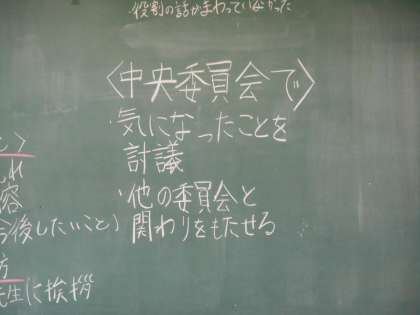 役割の話がまわっていなかった
〈中央委員会で〉
・気になったことを
討議
・他の委員会と
関わりをもたせる
れ
容
今後したいこと）
方
先生に挨拶